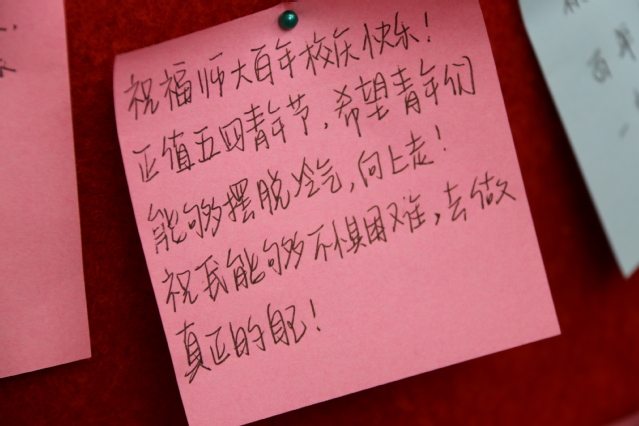 祝福师大百年校庆快乐！
正值五四青年节，希望青年们
能够摆脱冷气，向上走！
祝我能够不惧困难，去做
真正的自己！